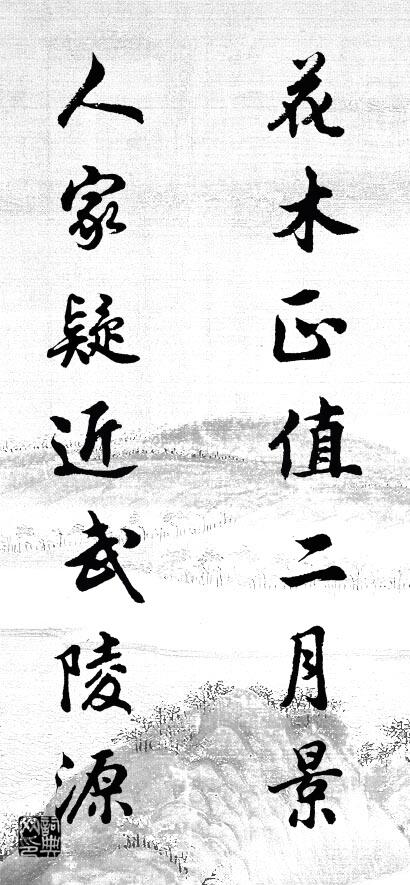 花木正值二月景
人家疑近武陵源